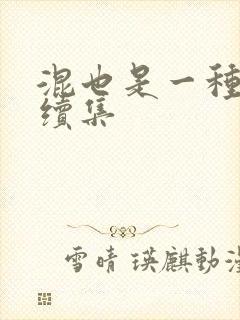 混也是一種
續集
雪晴 瑛麒動漫